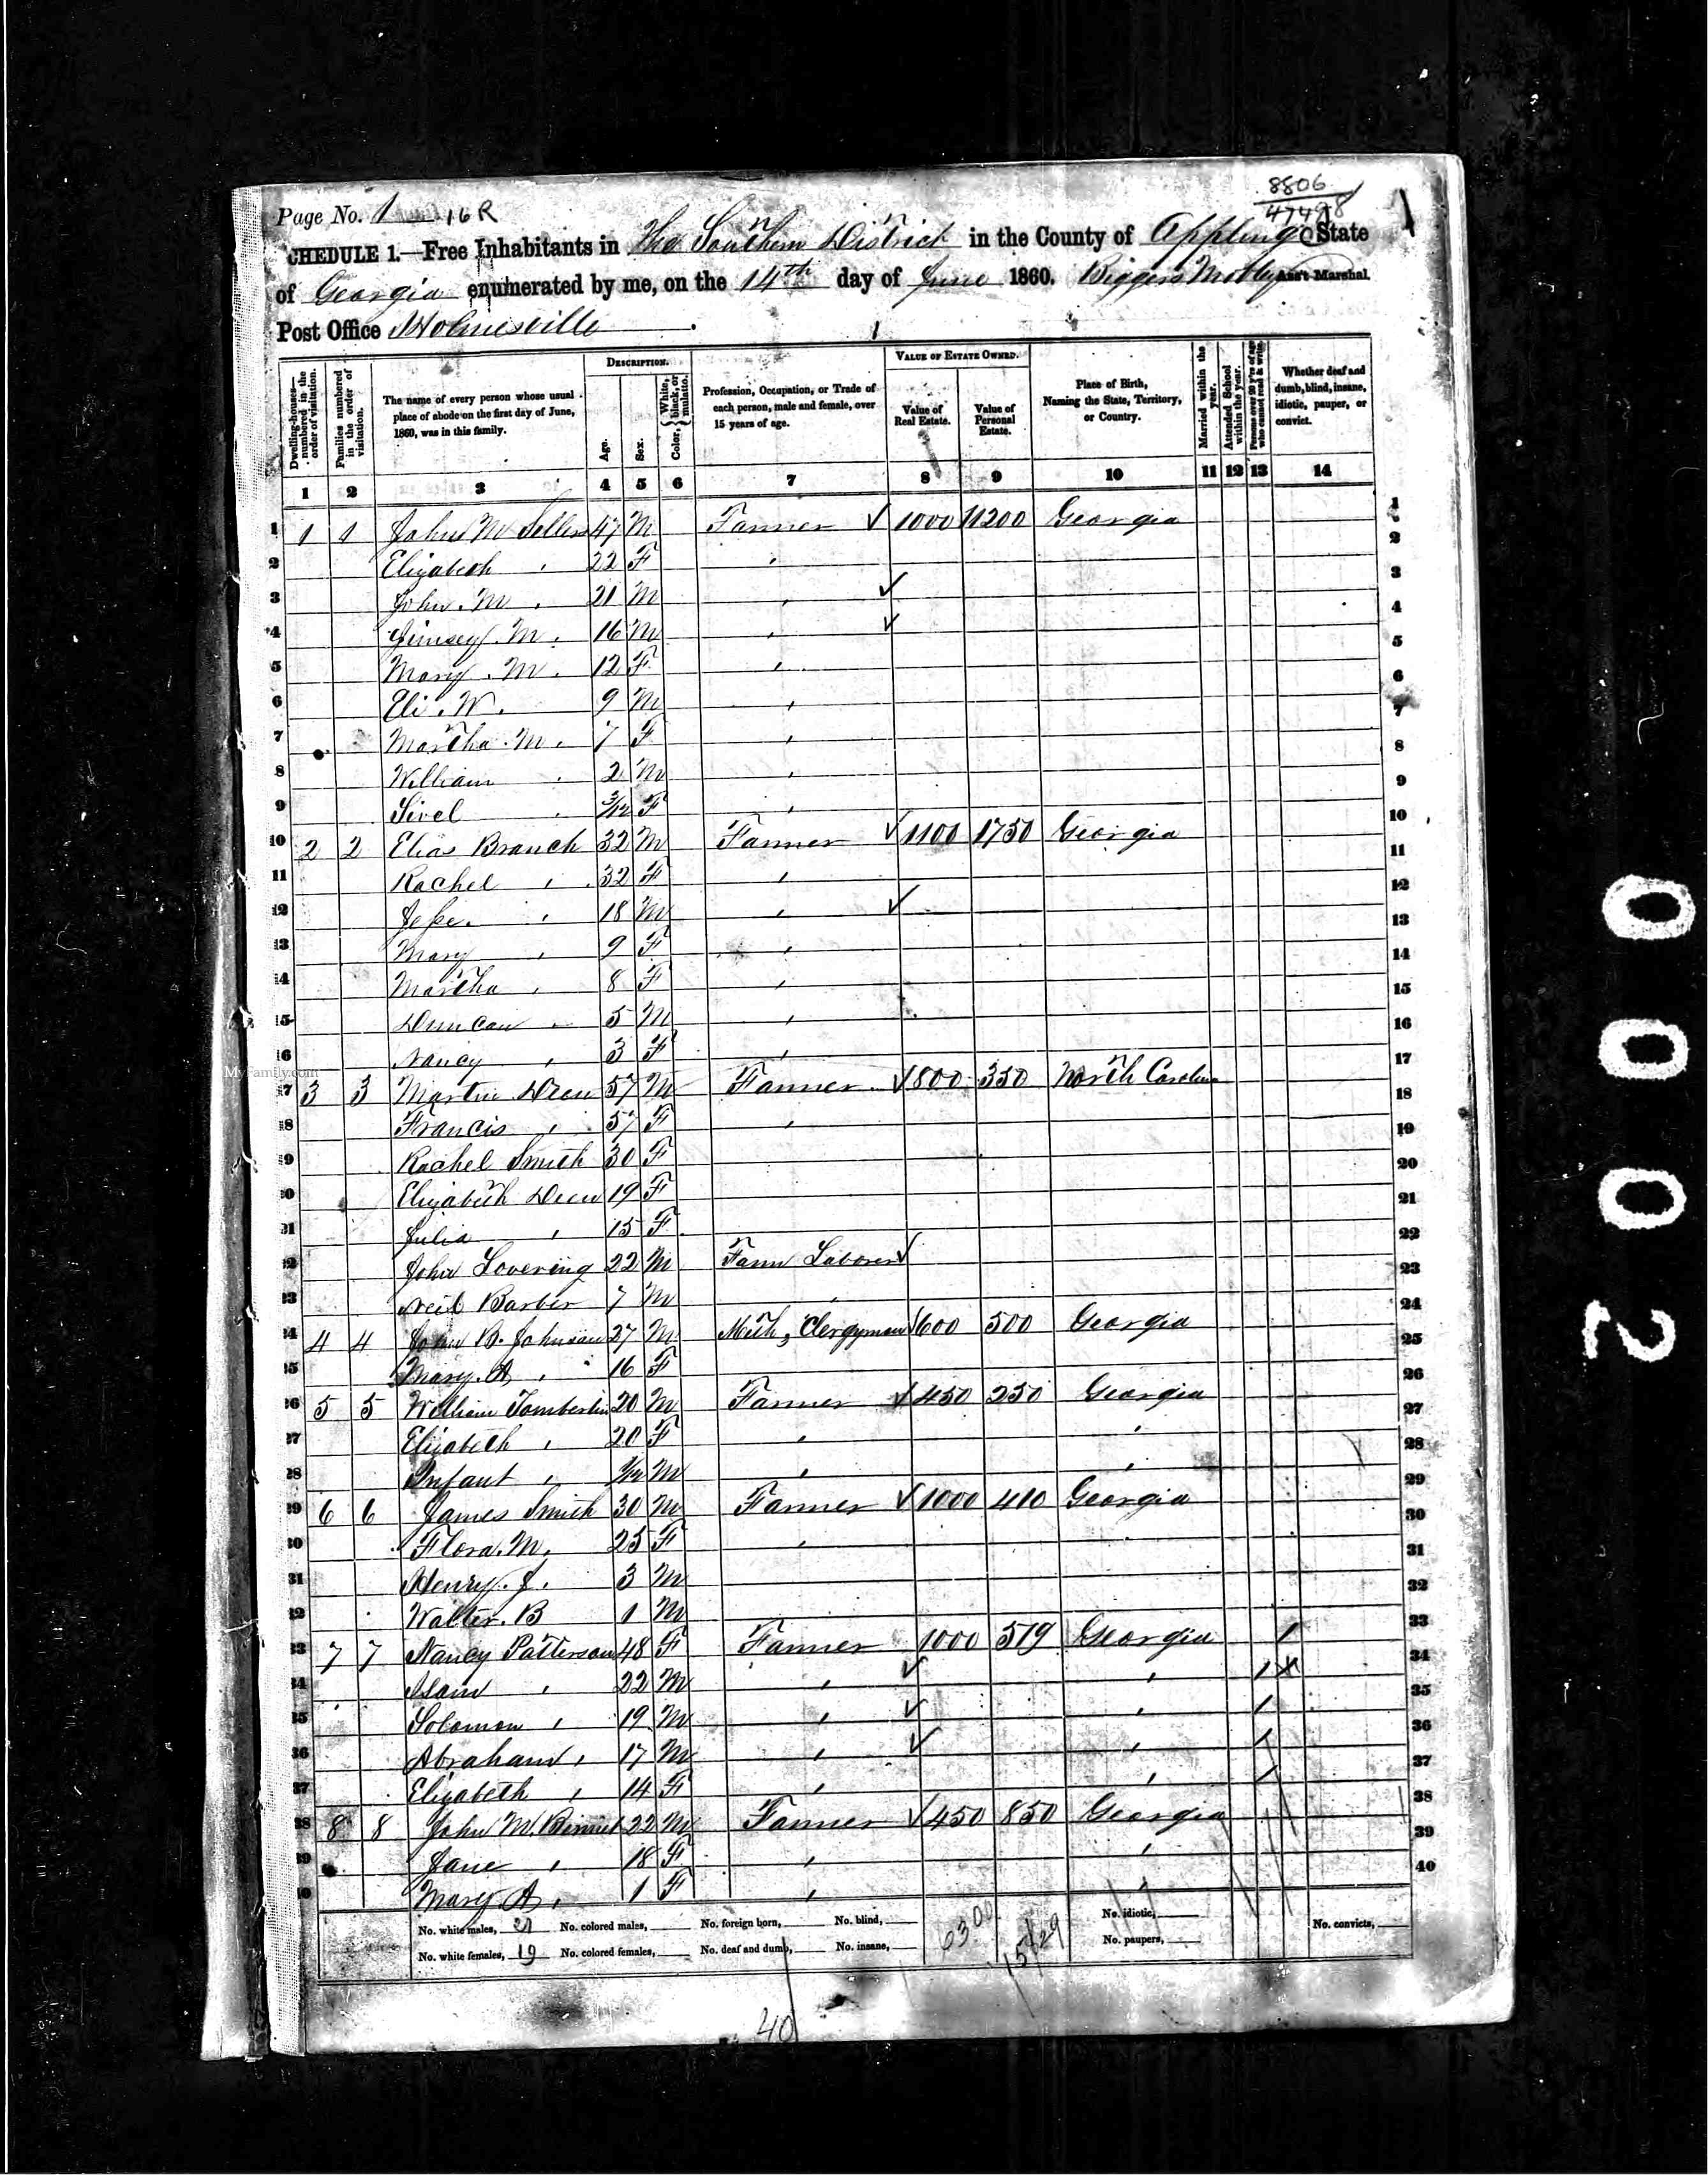 8806
47498
Page No. 1 16 R
CHEDULE 1.—Free Inhabitants in The Southern District in the County of Appling State
of Georgia enumerated by me, on the 14th day of June 1860. Biggers Mobley Ass't Marshal.
Post Office Holmesville
Dwelling-houses—numbered in the order of visitation.
Families numbered in the order of visitation.
The name of every person whose usual place of abode on the first day of June, 1860, was in this family.
DESCRIPTION.
Age.
Sex.
Color, White, black, or mulatto.
Profession, Occupation, or Trade of each person, male and female, over 15 years of age.
VALUE OF ESTATE OWNED.
Value of Real Estate.
Value of Personal Estate.
Place of Birth, Naming the State, Territory, or Country.
Married within the year.
Attended School within the year.
Persons over 20 y'rs of age who cannot read & write.
Whether deaf and dumb, blind, insane, idiotic, pauper, or convict.
1 2 3 4 5 6 7 8 9 10 11 12 13 14
1 1 1 John M Sellers 47 M Farmer 1000 11200 Georgia
2 Elizabeth " 22 F "
3 John. M " 21 M "
4 M. " 16 M "
5 Mary. M. 12 F "
6 Eli. W. 9 M "
7 Martha. M. 7 F "
8 William " 2 M "
9 Sivel " 3/12 F "
10 2 2 Elias Branch 32 M Farmer 1100 1750 Georgia
11 Rachel " 32 F "
12 Jesse. " 18 M "
13 Mary " 9 F "
14 Martha " 8 F "
15 Duncan " 5 M "
16 Nancy " 3 F "
17 3 3 Martin Deen 57 M Farmer 800 350 North Carolina
18 Francis " 57 F "
19 Rachel Smith 30 F
20 Elizabeth Deen 19 F
21 Julia " 15 F
22 John Lovering 22 M Farm Laborer
23 Neil Barber 7 M "
24 4 4 John B. Johnson 27 M Meth, Clergyman 600 500 Georgia
25 Mary. A " 16 F
26 5 5 William Tomberlin 20 M Farmer 450 250 Georgia
27 Elizabeth " 20 F " "
28 Infant " M " "
29 6 6 James Smith 30 M Farmer 1000 410 Georgia
30 Flora. M. 25 F "
31 Henry. J. 3 M
32 Walter. B 1 M
33 7 7 Nancy Patterson 48 F Farmer 1000 519 Georgia /
34 " 22 M " " / X
35 Solomon " 19 M " " /
36 Abraham " 17 M " " /
37 Elizabeth " 14 F " " /
38 8 8 John M. 22 M Farmer 450 850 Georgia
39 Jane " 18 F " "
40 Mary A " 1 F " "
No. white males, 21 No. colored males, No. foreign born, No. blind, 6300 No. idiotic, No. convicts,
No. white females, 19 No. colored females, No. deaf and dumb, No. insane, No. paupers,
40
MyFamily.com
0002